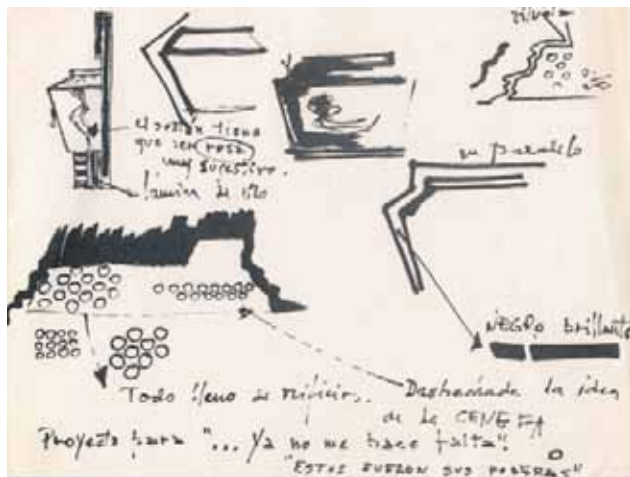 el sostén tiene
que ser rosa
muy sugestivo.
lámina de
en paralelo
NEGRO brillante
Todo lleno de orificios..
Deshechada la idea
de la CENEFA
Proyecto para "... Ya no me hace falta".
o
"ESTOS FUERON SUS PODERES"